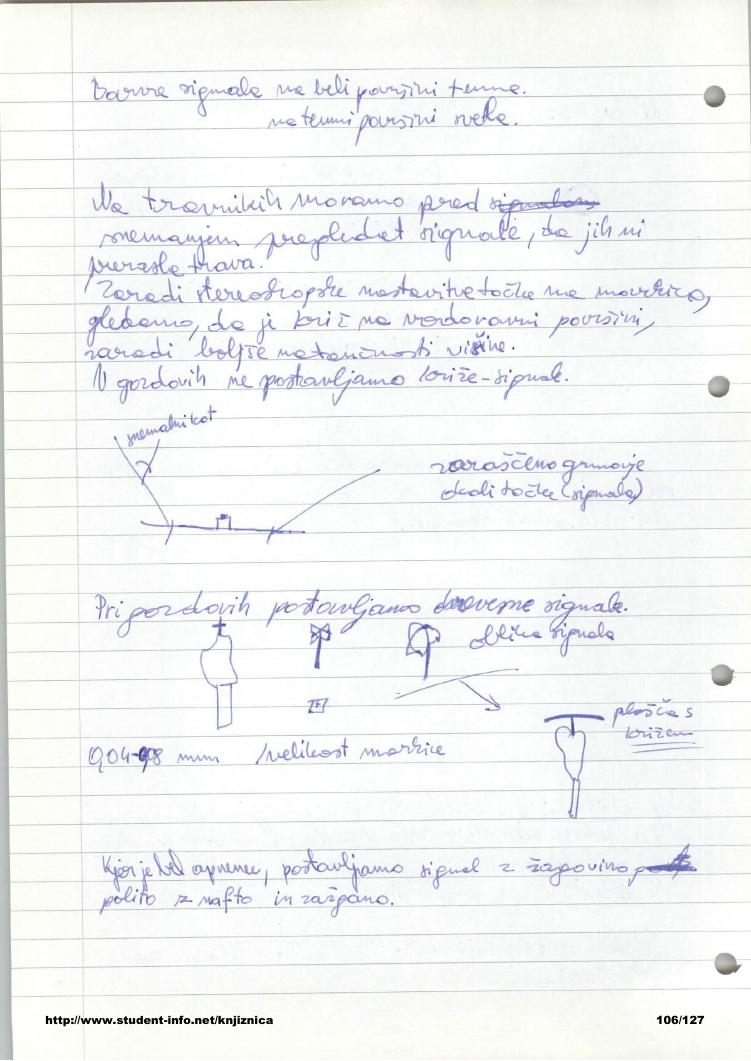 Barva signala na beli površini temna.
na temni površini svetla.
Na travnikih moramo pred
snemanjem pregledat signale, da jih ni
prerasla trava.
Zaradi stereoskopske nastavitve točke na markico,
gledamo, da je križ na vodoravni površini,
zaradi boljše natančnosti višine.
V gozdovih ne postavljamo križe-signale.
snemalni kot
zaraščeno grmovje
okoli točke (signala)
Pri gozdovih postavljamo drevesne signale.
oblika signala
plošča s
križem
0,04-0,08 mm /velikost markice
Kjer je bel apnenec, postavljamo signal z žagovino
polito z nafto in zažgano.
http://www.student-info.net/knjiznica 106/127